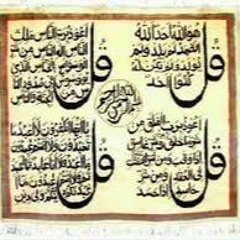 قل هو الله احد الله
الصمد لم يلد ولم
يولد ولم يكن له
كفوا احد
قل اعوذ برب الناس ملك
الناس اله الناس من
شر الوسواس
الخناس الذي
يوسوس في صدور الناس
من الجنة والناس
بسم الله الرحمن الرحيم
قل اعوذ برب الفلق من
شر ما خلق ومن شر غاسق
اذا وقب ومن شر النفثت
في العقد ومن شر
حاسد اذا حسد
قل يا ايها الكفرون لا اعبد ما
تعبدون ولا انتم عبدون
ولي دين